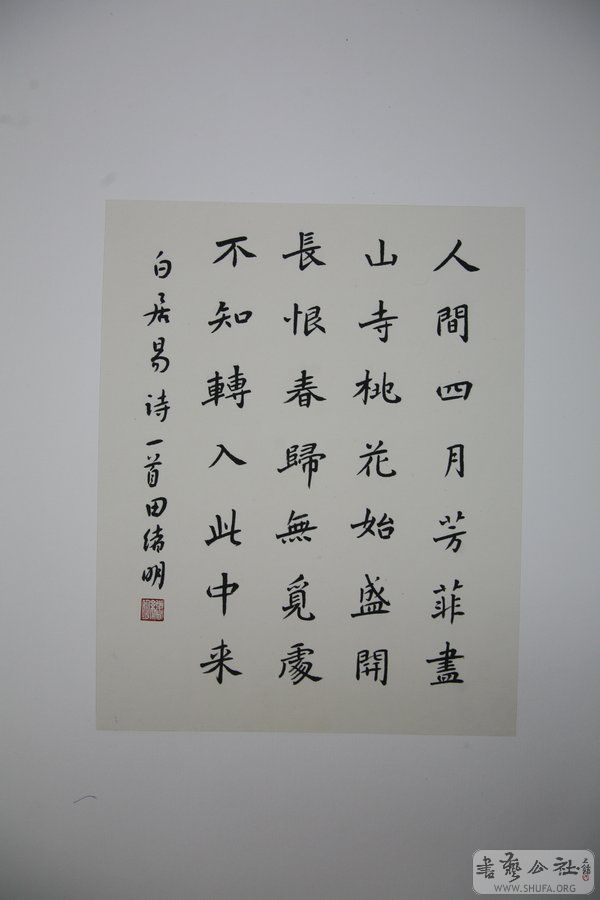 人間四月芳菲盡
山寺桃花始盛開
長恨春歸無覓處
不知轉入此中来
白居易诗一首田緒明
書藝公社
WWW.SHUFA.ORG